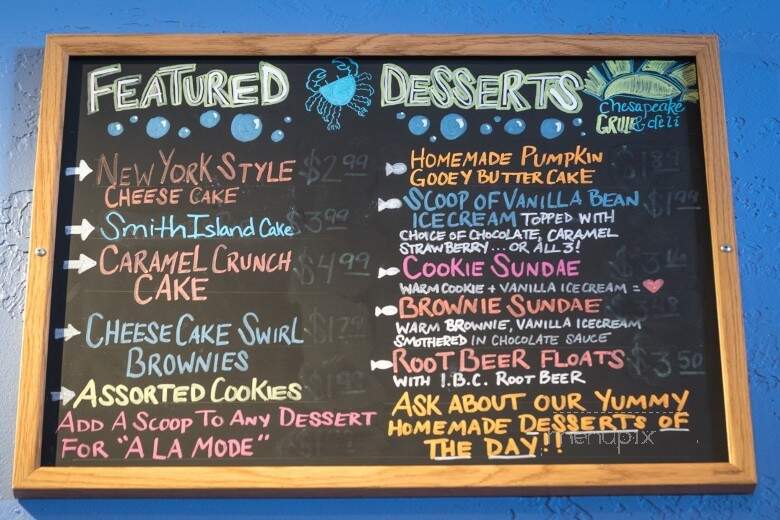 FEATURED DESSERTS
Chesapeake
GRILLE & deli
NEW YORK STYLE $2.99
CHEESE CAKE
Smith Island Cake $3.99
CARAMEL CRUNCH $4.99
CAKE
CHEESE CAKE SWIRL
BROWNIES
ASSORTED COOKIES
ADD A SCOOP TO ANY DESSERT
FOR "A LA MODE"
HOMEMADE PUMPKIN
GOOEY BUTTER CAKE
SCOOP OF VANILLA BEAN $1.99
ICE CREAM TOPPED WITH
CHOICE OF CHOCOLATE, CARAMEL
STRAWBERRY... OR ALL 3!
COOKIE SUNDAE
WARM COOKIE + VANILLA ICE CREAM =
BROWNIE SUNDAE
WARM BROWNIE, VANILLA ICECREAM
SMOTHERED IN CHOCOLATE SAUCE
ROOT BEER FLOATS $3.50
WITH I.B.C. ROOT BEER
ASK ABOUT OUR YUMMY
HOMEMADE DESSERTS OF
THE DAY!!
menupix